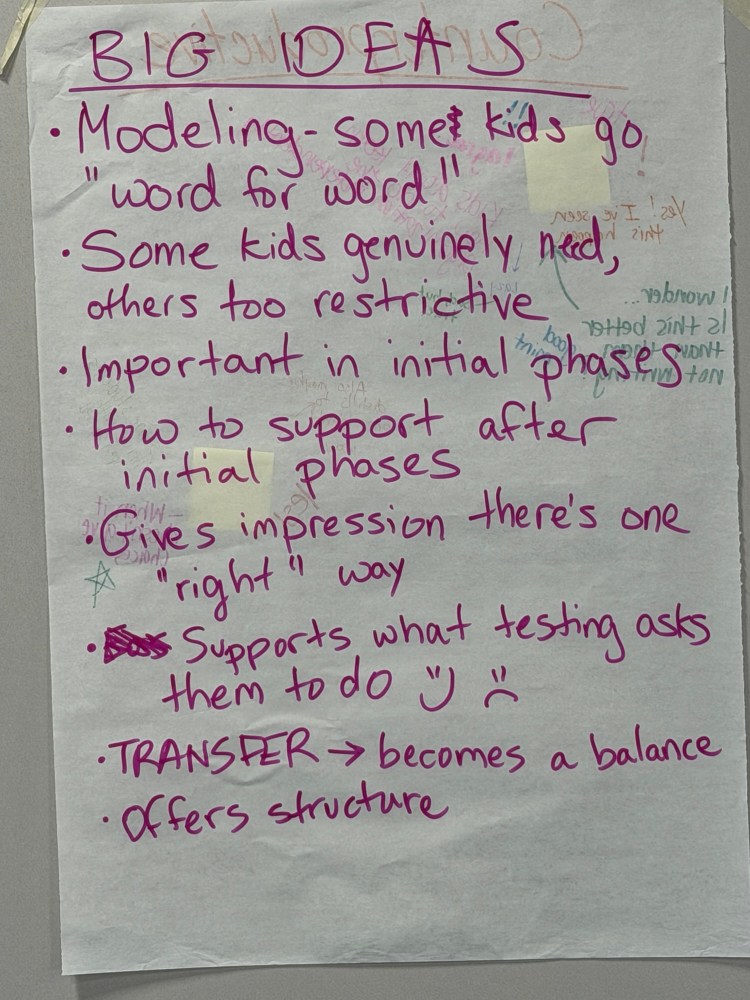 BIG IDEAS
• Modeling - some kids go
"word for word"
• Some kids genuinely need,
others too restrictive
• Important in initial phases
• How to support after
initial phases
• Gives impression there's one
"right" way
• Supports what testing asks
them to do
• TRANSFER → becomes a balance
• Offers structure
Yes! I've seen
this happen
I wonder...
Is this better
than
not writing?